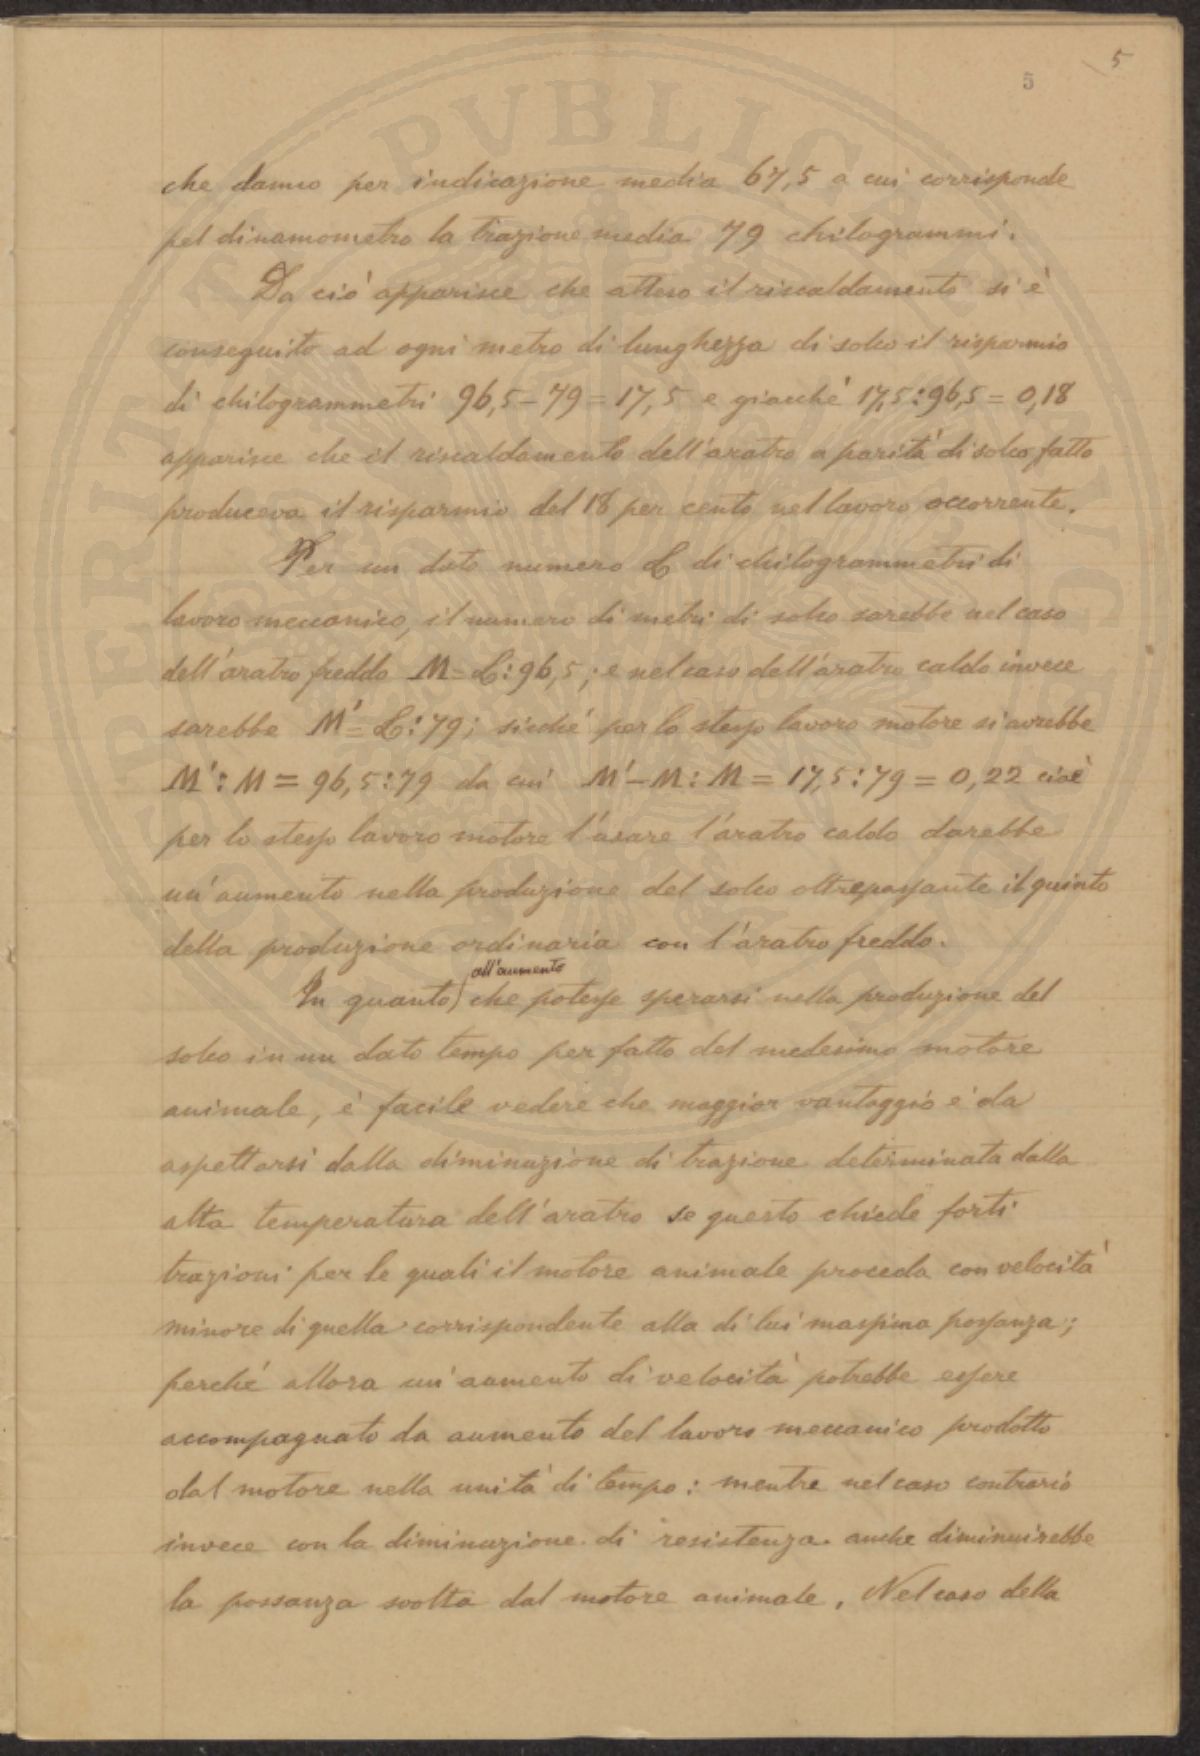 5
5
che danno per indicazione media 67,5 a cui corrisponde
pel dinamometro la trazione media 79 chilogrammi.
Da ciò apparisce che atteso il riscaldamento si è
conseguito ad ogni metro di lunghezza di solco il risparmio
di chilogrammetri 96,5 - 79 = 17,5 e giacché 17,5 : 96,5 = 0,18
apparisce che il riscaldamento dell'aratro a parità di solco fatto
produceva il risparmio del 18 per cento nel lavoro occorrente.
Per un dato numero L di chilogrammetri di
lavoro meccanico, il numero di metri di solco sarebbe nel caso
dell'aratro freddo M = L : 96,5 ; e nel caso dell'aratro caldo invece
sarebbe M' = L : 79 ; sicché per lo stesso lavoro motore si avrebbe
M' : M = 96,5 : 79 da cui M' - M : M = 17,5 : 79 = 0,22 cioè
per lo stesso lavoro motore l'usare l'aratro caldo darebbe
un'aumento nella produzione del solco oltrepassante il quinto
della produzione ordinaria con l'aratro freddo.
all'aumento
In quanto che potesse sperarsi nella produzione del
solco in un dato tempo per fatto del medesimo motore
animale, è facile vedere che maggior vantaggio è da
aspettarsi dalla diminuzione di trazione determinata dalla
alta temperatura dell'aratro se questo chiede forti
trazioni per le quali il motore animale proceda con velocità
minore di quella corrispondente alla di lui massima possanza ;
perché allora un'aumento di velocità potrebbe essere
accompagnato da aumento del lavoro meccanico prodotto
dal motore nella unità di tempo : mentre nel caso contrario
invece con la diminuzione di resistenza anche diminuirebbe
la possanza svolta dal motore animale. Nel caso della